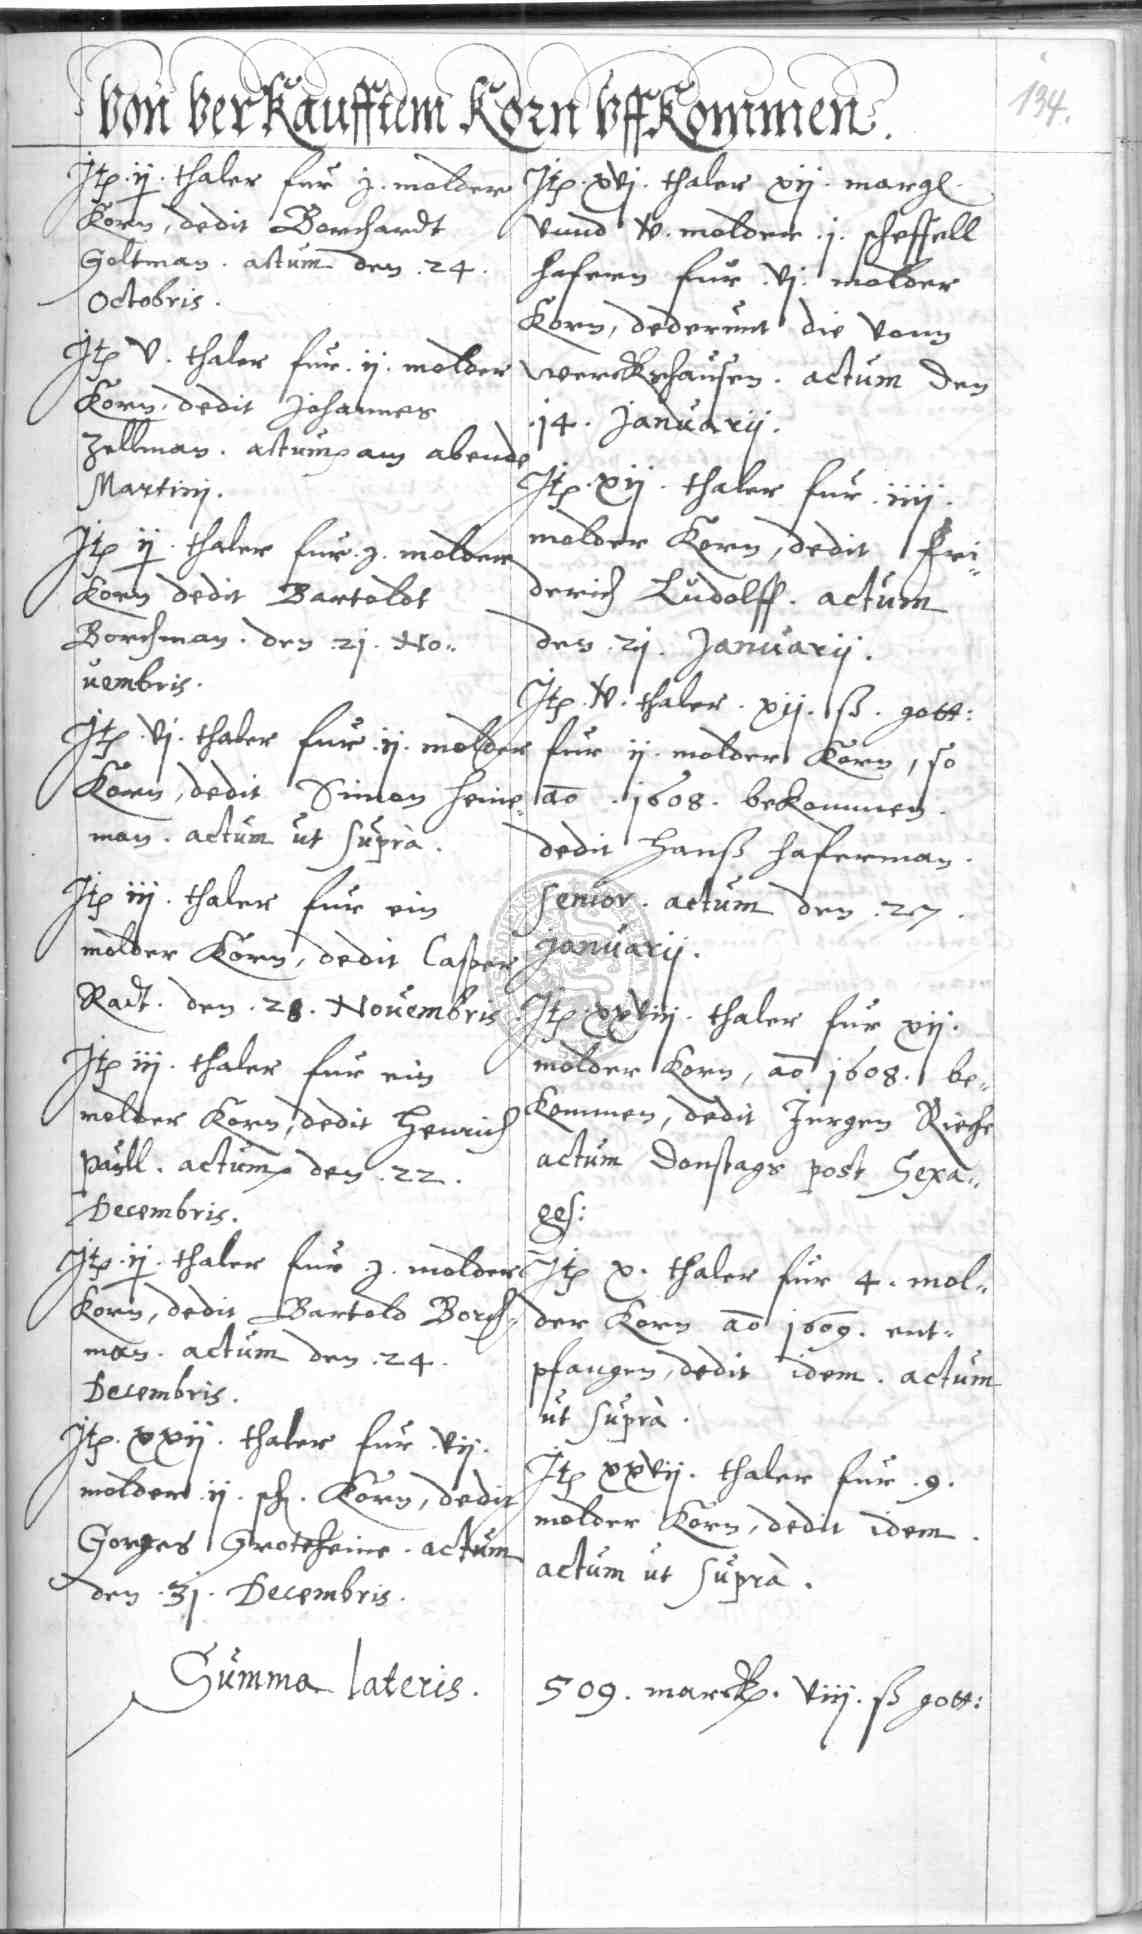 134.
Von verkaufftem Korn vffkommen.
Itp. ij. thaler fur j. molder
Korn, dedit Borchardt
Goltman. actum den .24.
Octobris.
Itp V. thaler fur .ij. molder
Korn, dedit Johannes
Zellman. actum am abende
Martini.
Itp ij. thaler fur .j. molder
Korn dedit Bartoldt
Borchman. den .21. No„
uembris.
Itp. vj. thaler fur .ij. molder
Korn, dedit Simon Heine„
man. actum ut suprà.
Itp iij. thaler fur ein
molder Korn, dedit Casper
Radt. den .28. Nouembris.
Itp iij. thaler fur ein
molder Korn, dedit Henrich
Paull. actum den .22.
Decembris.
Itp. ij. thaler fur j. molder
Korn, dedit Bartold Borch„
man. actum den .24.
Decembris.
Itp. xxij. thaler fur .vij.
molder .ij. sch. Korn, dedit
Gorges Grotheine. actum
den .31. Decembris.
Summa lateris.
Itp. xvj. thaler xij. margl.
vnnd iv. molder .j. scheffell
hafern fur .vj. molder
Korn, dederunt die vonn
Werckshausen. actum den
.14. Januarij.
Itp. xij. thaler fur .iiij.
molder Korn, dedit Fri„
derich Ludolff. actum
den .21. Januarij.
Itp. iv. thaler. xij. ß. gott:
fur ij. molder Korn, so
ao .1608. bekommen.
dedit Hanß Haferman
senior. actum den .27.
Januarij.
Itp. xxviij. thaler fur xij.
molder Korn, ao 1608. be„
kommen, dedit Jurgen Rieche
actum Donstags post Sexa„
ges:
Itp x. thaler fur 4. mol„
der Korn ao 1609. ent„
pfangen, dedit idem. actum
ut suprà.
Itp xxvij. thaler fur .9.
molder Korn, dedit idem.
actum ut suprà.
509. marck. viij. ß gott: